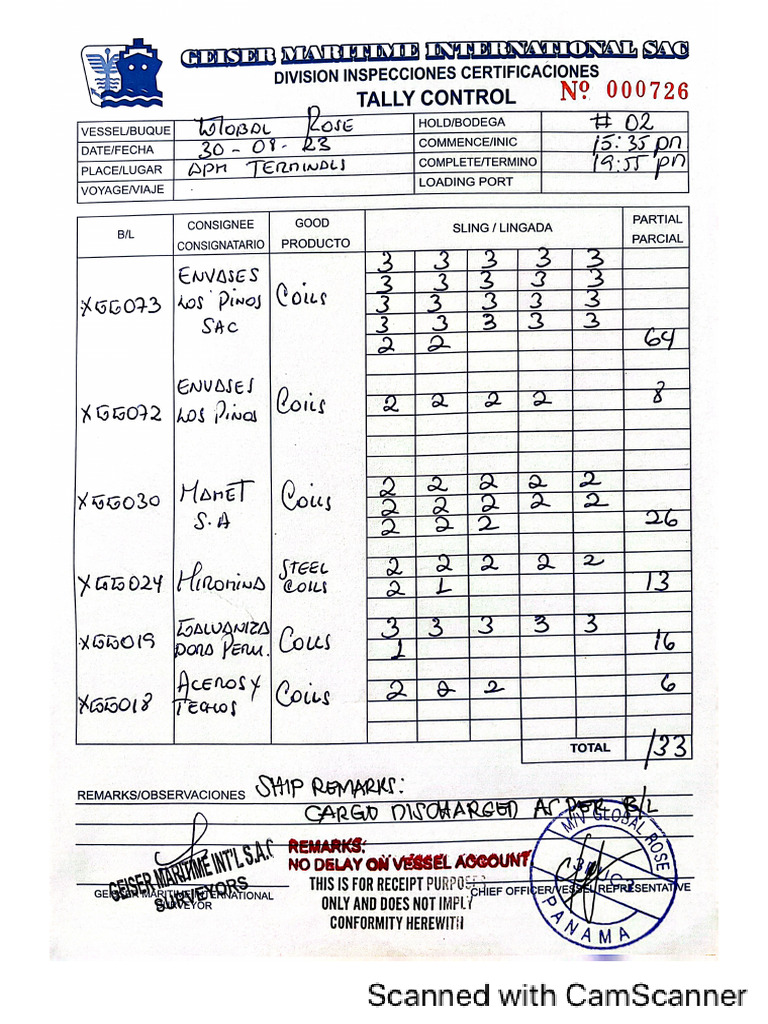 GEISER MARITIME INTERNATIONAL SAC
DIVISION INSPECCIONES CERTIFICACIONES
TALLY CONTROL
Nº 000726
VESSEL/BUQUE Global Rose HOLD/BODEGA # 02
DATE/FECHA 30-08-23 COMMENCE/INIC 15:35 pm
PLACE/LUGAR APM TERMINALS COMPLETE/TERMINO 19:55 pm
VOYAGE/VIAJE LOADING PORT
B/L CONSIGNEE CONSIGNATARIO GOOD PRODUCTO SLING / LINGADA PARTIAL PARCIAL
3 3 3 3 3
XGG073 ENVASES LOS PINOS SAC Coils 3 3 3 3 3
3 3 3 3 3
3 3 3 3 3
2 2 64
XGG072 ENVASES LOS PINOS Coils 2 2 2 2 8
XGG030 MAMET S.A Coils 2 2 2 2 2
2 2 2 2 2
2 2 2 26
XGG024 HIROMINA STEEL COILS 2 2 2 2 2
2 1 13
XGG019 GALVANIZADORA PERU. Coils 3 3 3 3 3
1 16
XGG018 ACEROS Y TECHOS Coils 2 2 2 6
TOTAL 133
REMARKS/OBSERVACIONES SHIP REMARKS:
CARGO DISCHARGED AS PER B/L
REMARKS:
NO DELAY ON VESSEL ACCOUNT
THIS IS FOR RECEIPT PURPOSES
ONLY AND DOES NOT IMPLY
CONFORMITY HEREWITH
GEISER MARITIME INT'L S.A.C
SURVEYORS
GEISER MARITIME INTERNATIONAL
SURVEYOR
CHIEF OFFICER/VESSEL REPRESENTATIVE
M/V GLOBAL ROSE
PANAMA
Scanned with CamScanner